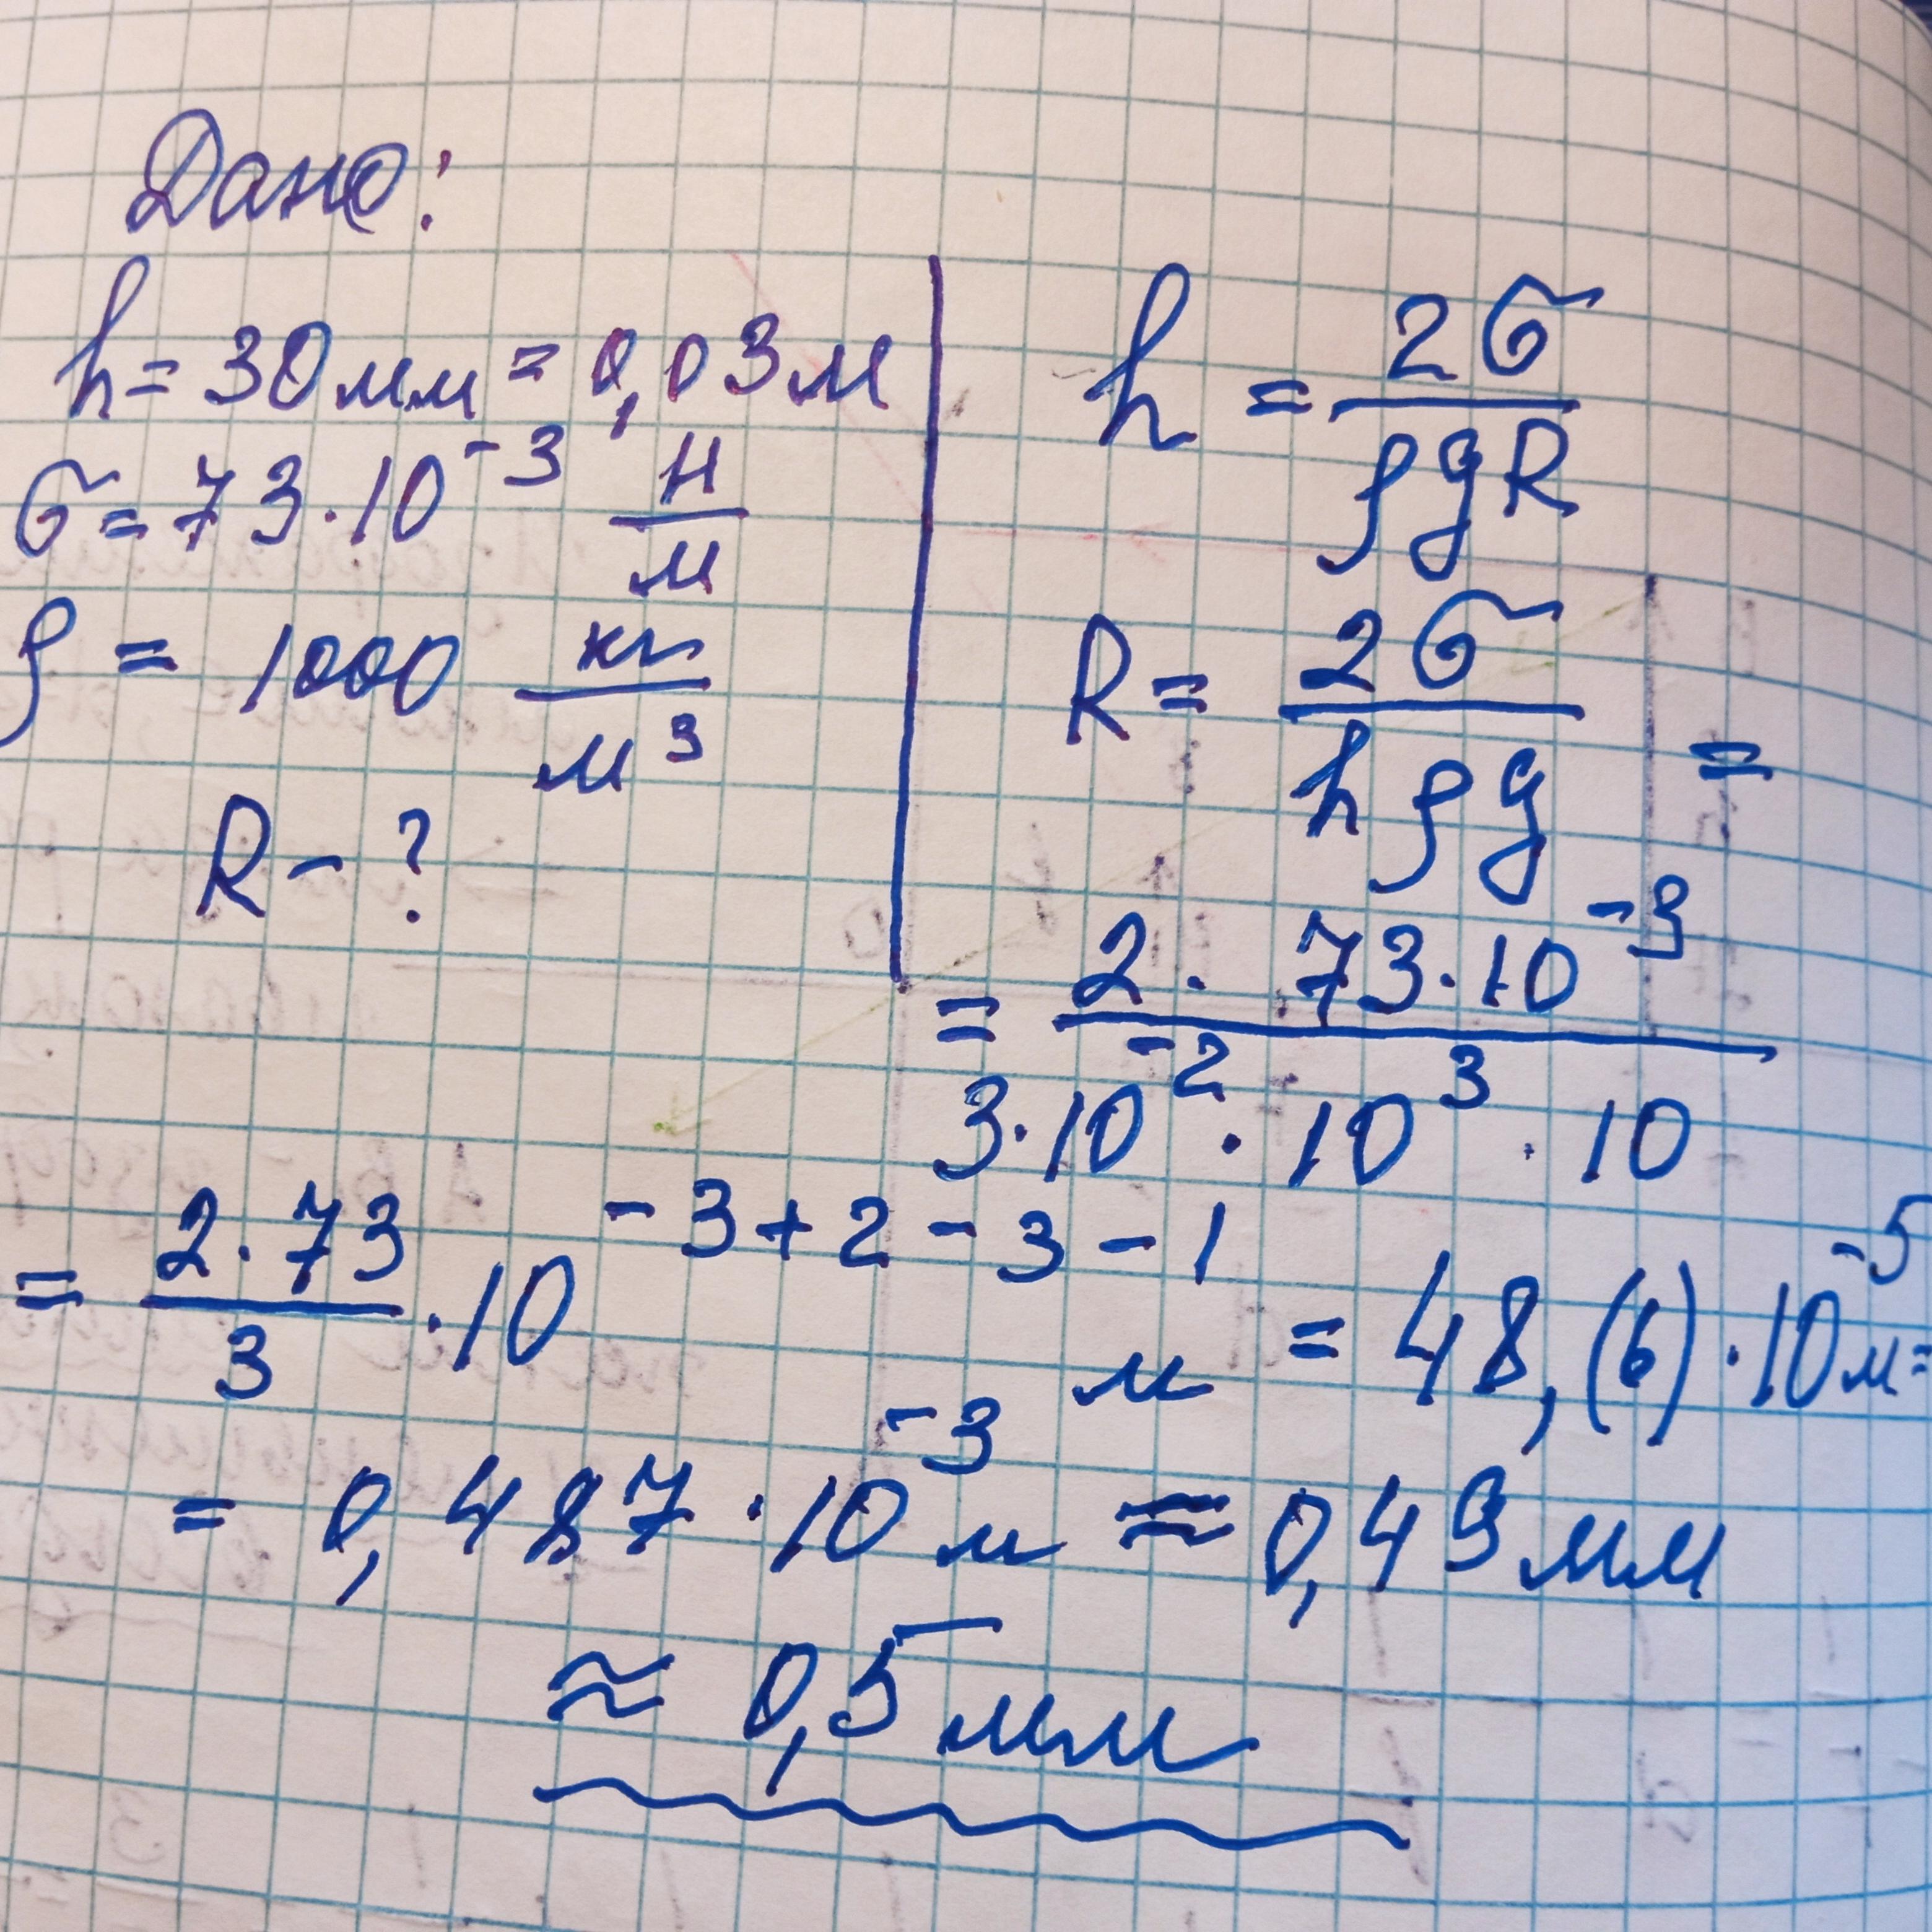 Дано:
h = 30 мм = 0,03 м
σ = 73 · 10⁻³ Н/м
ρ = 1000 кг/м³
R - ?
h = 2σ/ρgR
R = 2σ/hρg =
= 2 · 73 · 10⁻³/3 · 10⁻² · 10³ · 10
= 2 · 73/3 · 10⁻³⁺²⁻³⁻¹ м = 48,(6) · 10⁻⁵ м =
= 0,487 · 10⁻³ м ≈ 0,49 мм
≈ 0,5 мм